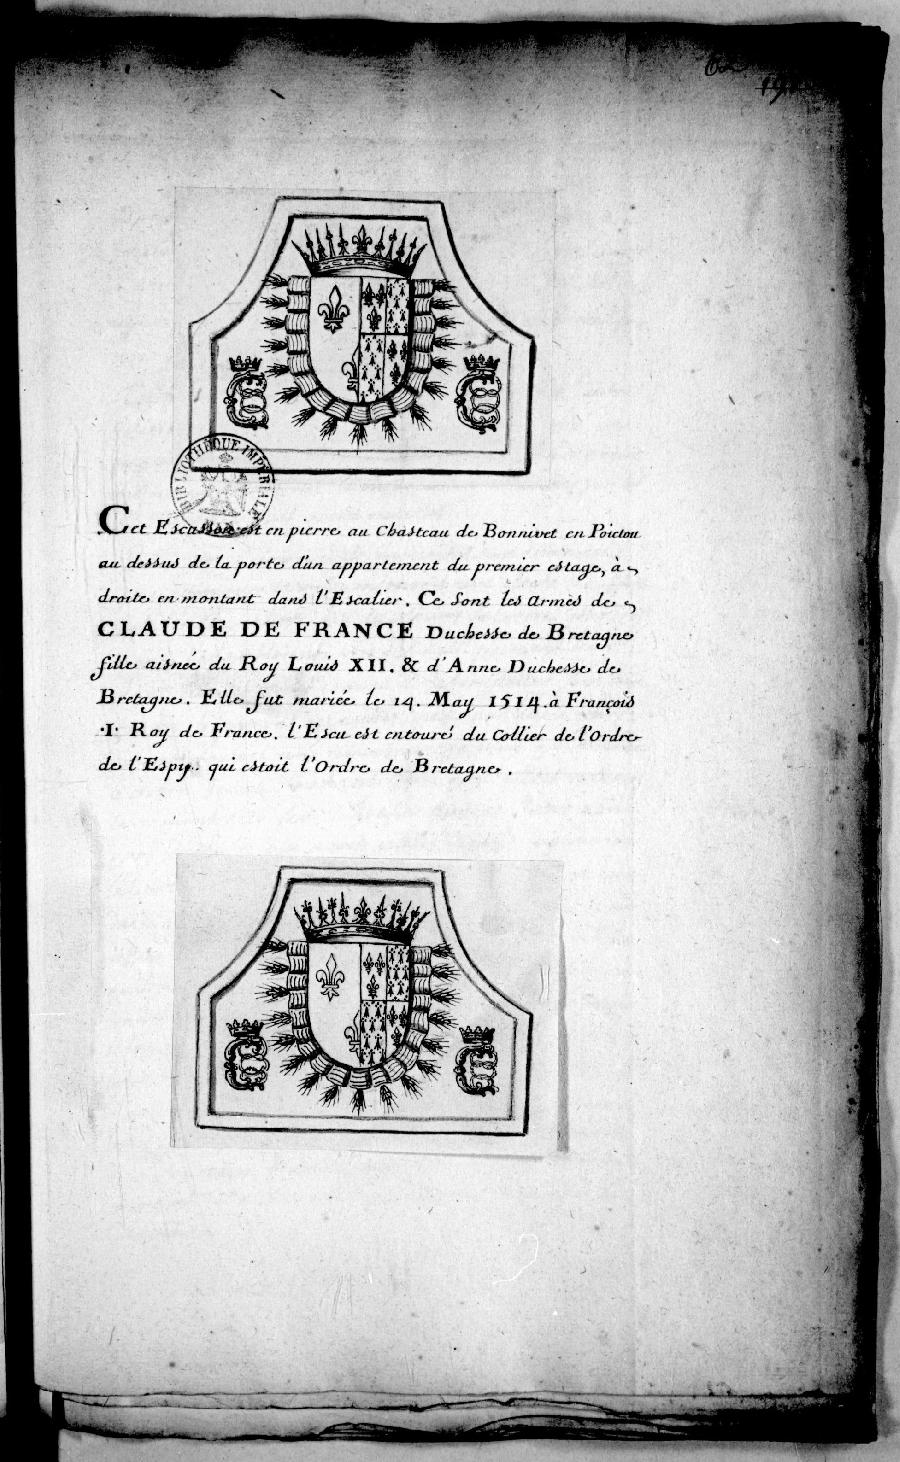 BIBLIOTHEQUE IMPERIALE
Cet Escusson est en pierre au Chasteau de Bonnivet en Poictou
au dessus de la porte d'un appartement du premier estage, à
droite en montant dans l'Escalier. Ce sont les armes de
CLAUDE DE FRANCE Duchesse de Bretagne
fille aisneé du Roy Louis XII. & d'Anne Duchesse de
Bretagne. Elle fut marieé le 14. May 1514. à François
·I· Roy de France. l'Escu est entouré du Collier de l'Ordre
de l'Espy.. qui estoit l'Ordre de Bretagne.